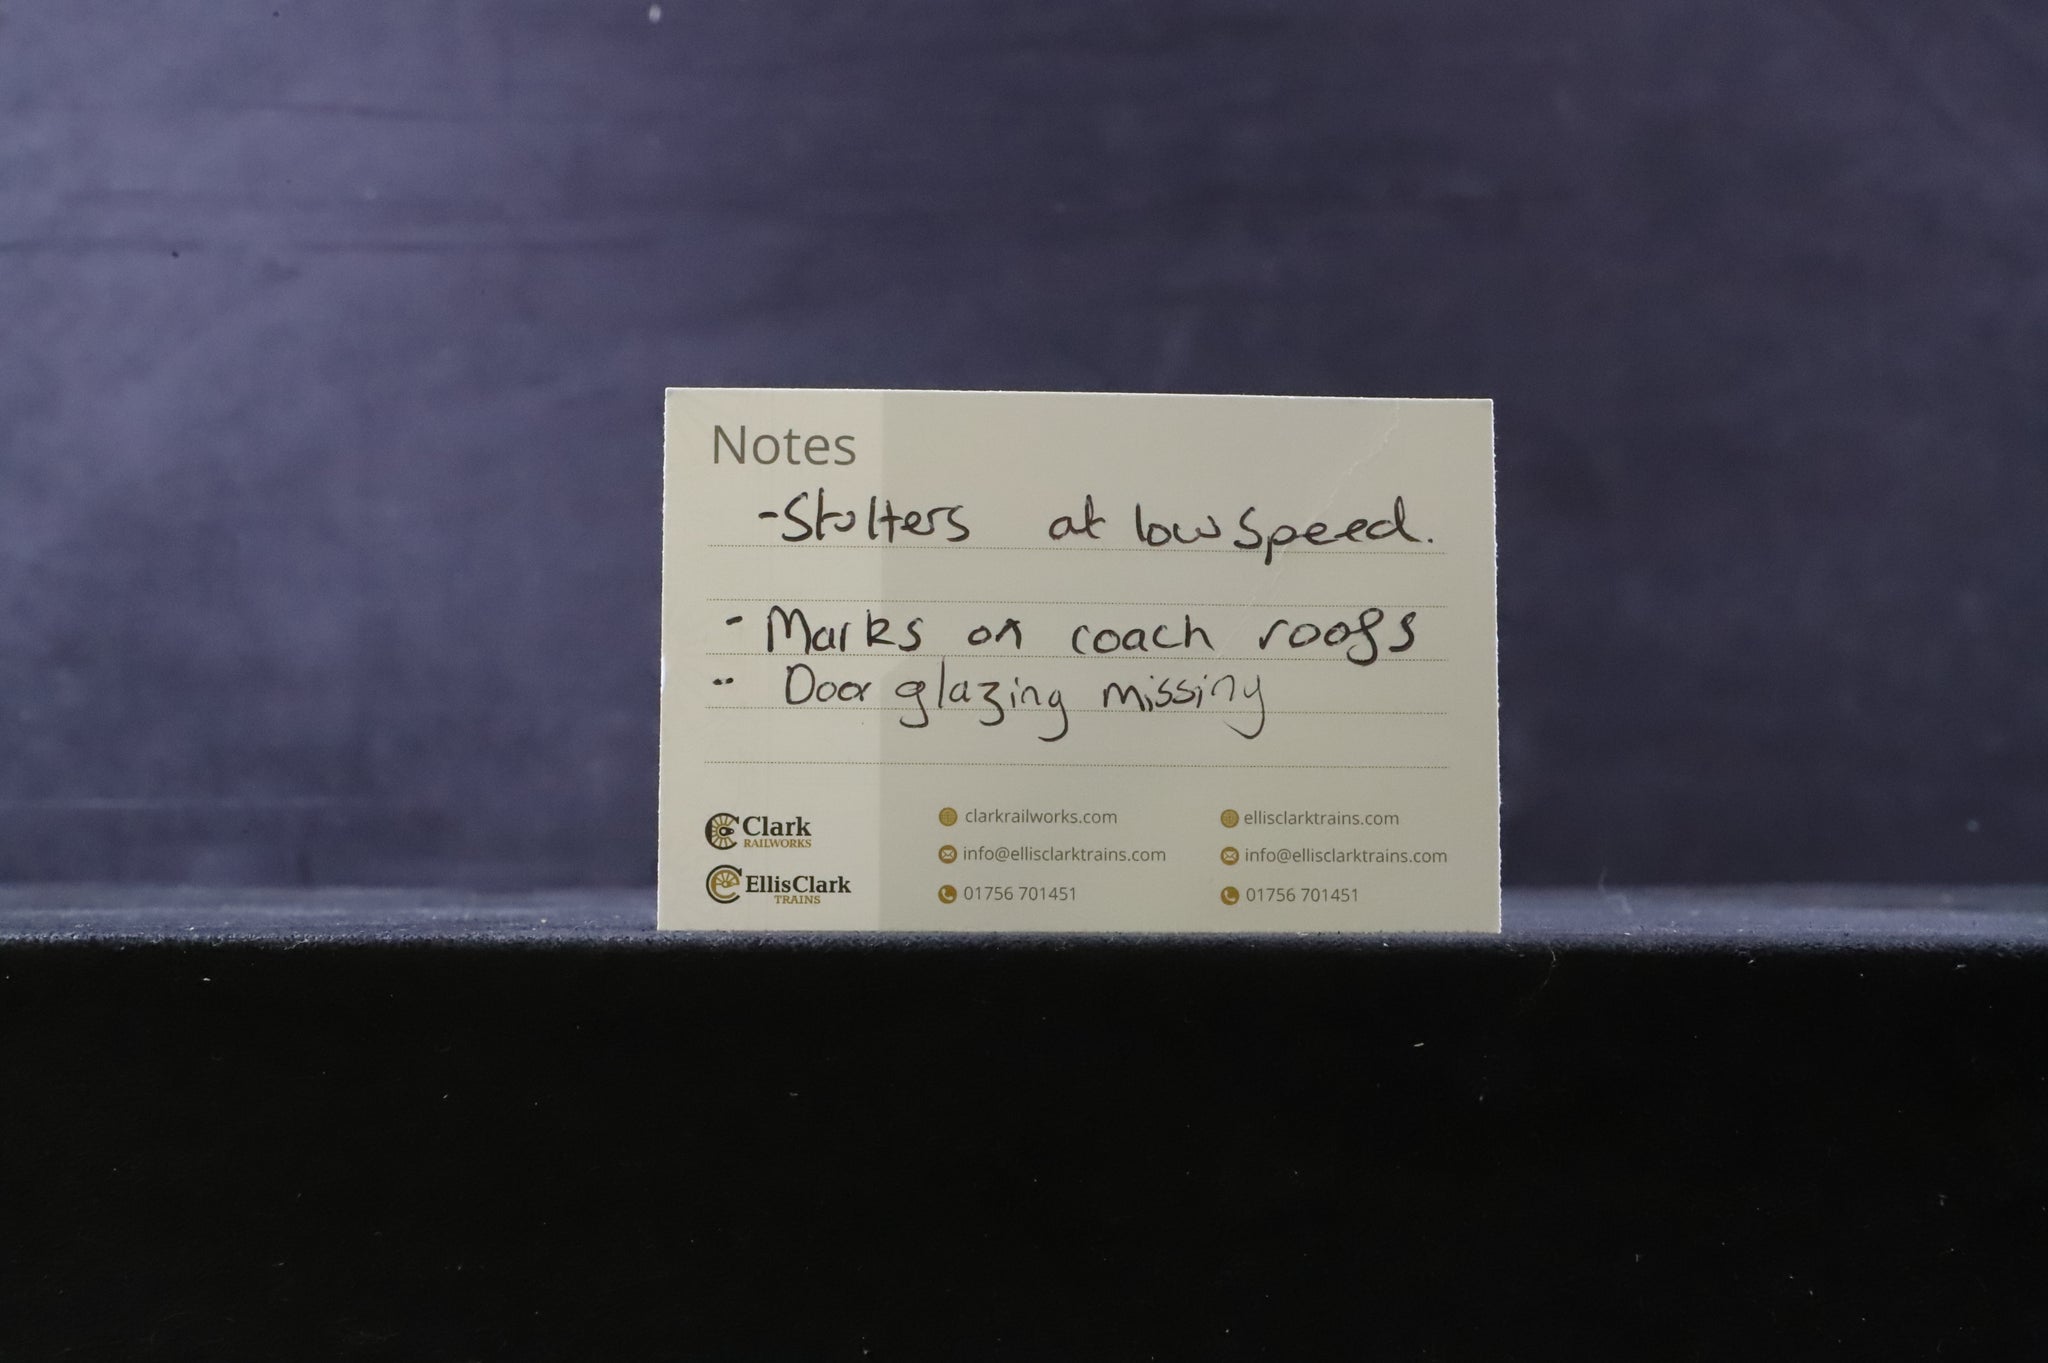 Notes
- Stutters at low speed.
- Marks on coach roofs
- Door glazing missing
Clark
RAILWORKS
clarkrailworks.com
ellisclarktrains.com
info@ellisclarktrains.com
info@ellisclarktrains.com
EllisClark
TRAINS
01756 701451
01756 701451